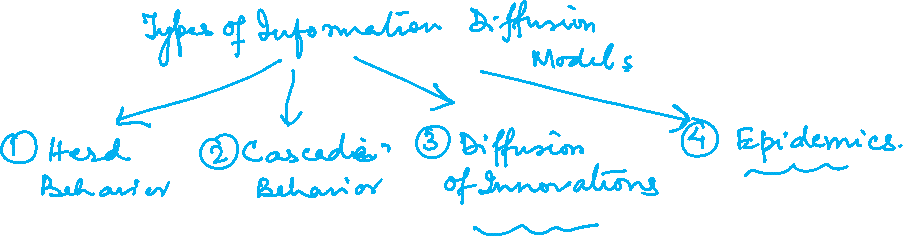 Types of Information Diffusion
Models
① Herd
Behavior
② Cascade
Behavior
③ Diffusion
of Innovations
④ Epidemics.